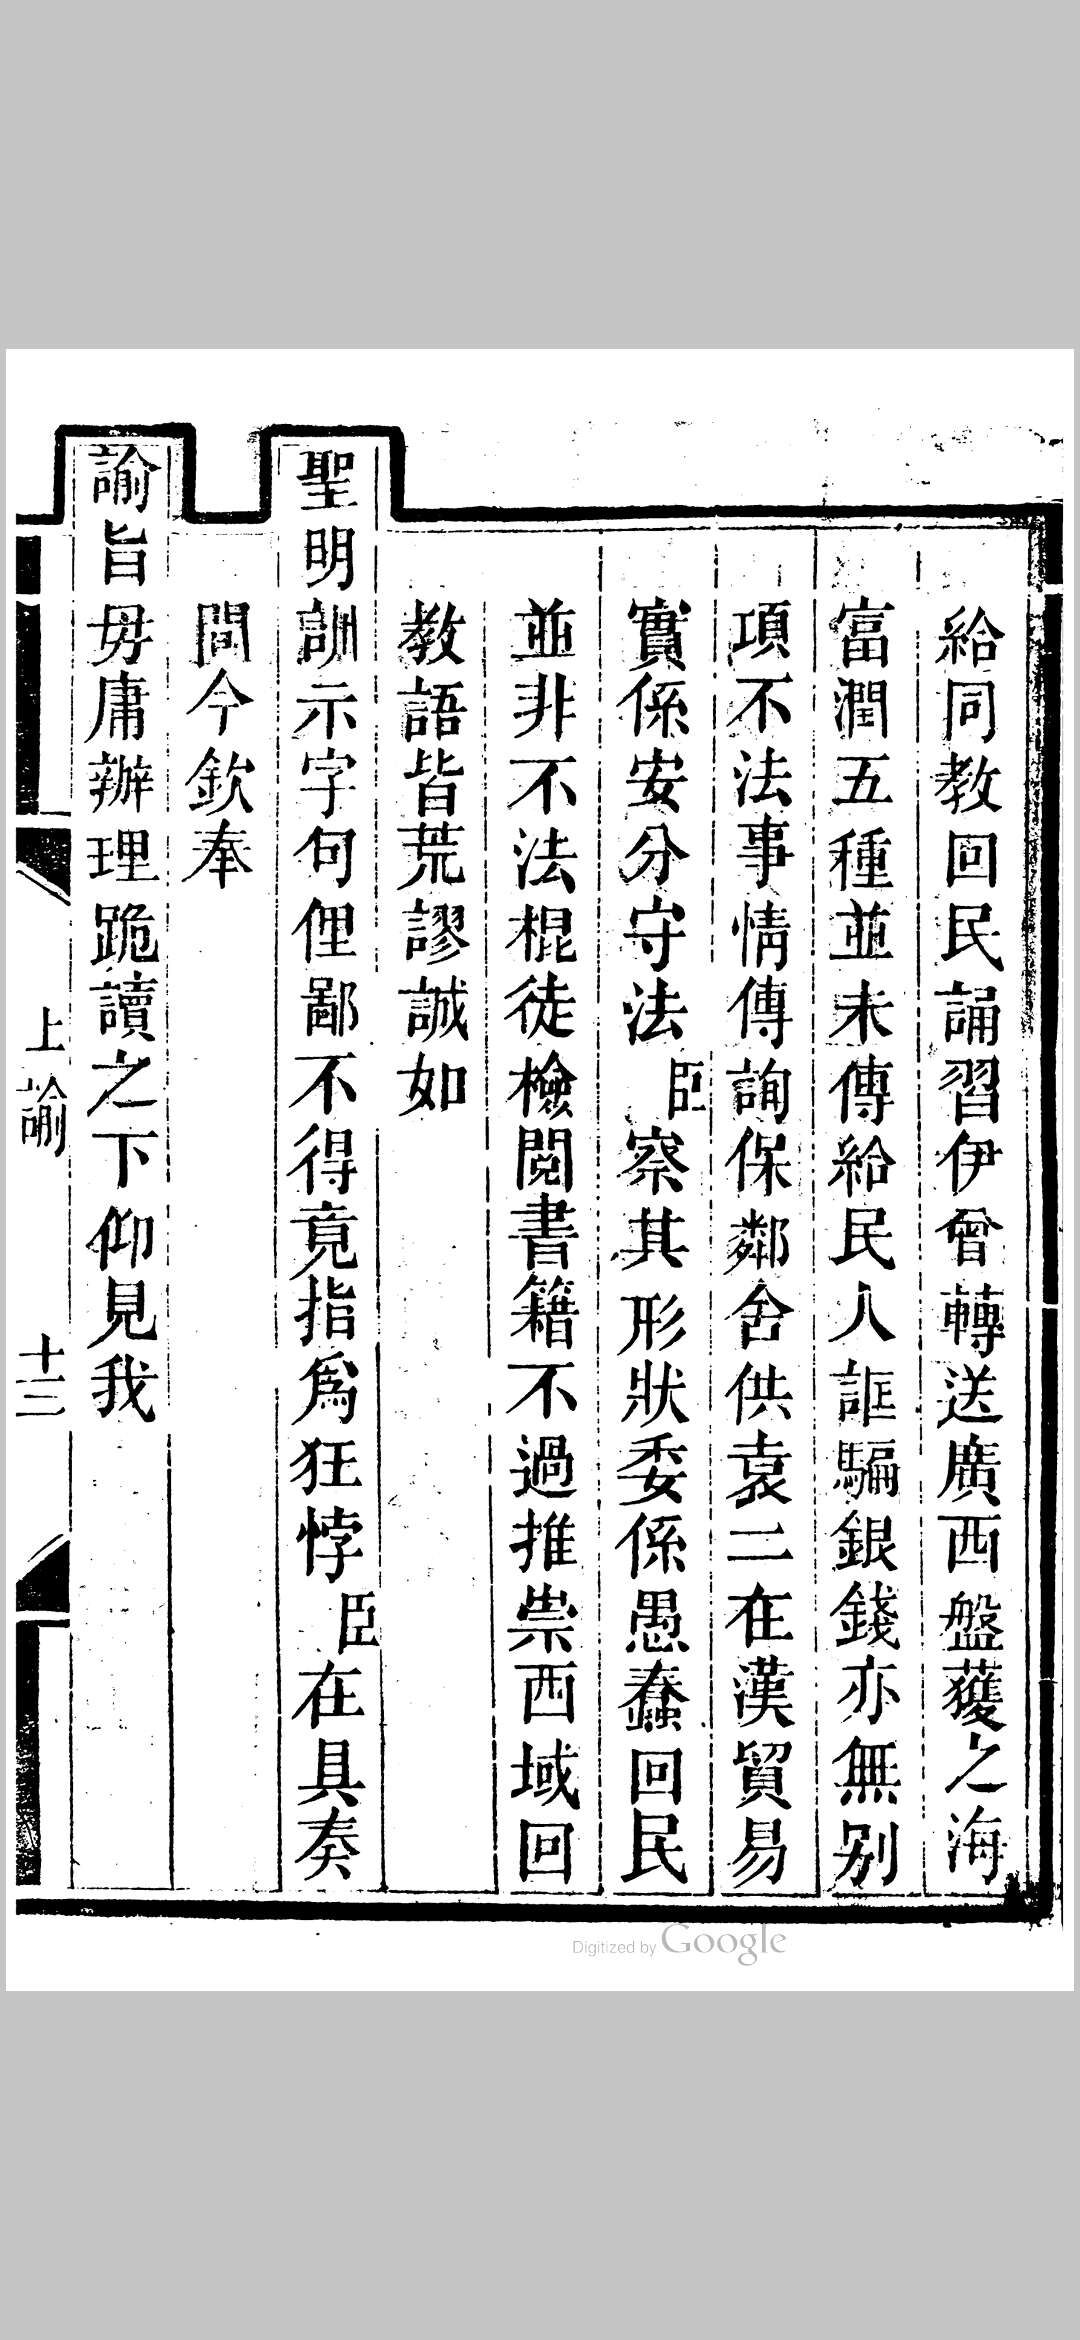 給同教回民誦習伊曾轉送廣西盤獲之海
富潤五種並未傳給民人誆騙銀錢亦無别
項不法事情傳詢保鄰舍供袁二在漢貿易
實係安分守法臣察其形狀委係愚蠢回民
並非不法棍徒檢閱書籍不過推崇西域回
教語皆荒謬誠如
聖明訓示字句俚鄙不得竟指爲狂悖臣在具奏
間今欽奉
諭旨毋庸辦理跪讀之下仰見我
上諭
十三
Digitized by Google